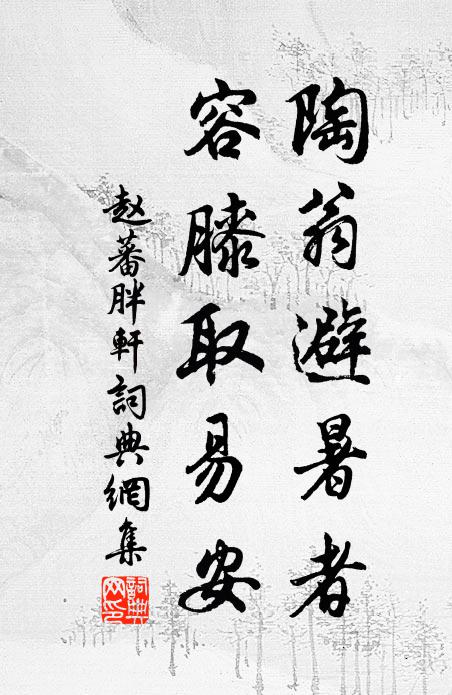 陶翁避暑者
容膝取易安
赵蕃胖軒詞典網集
詞典网印